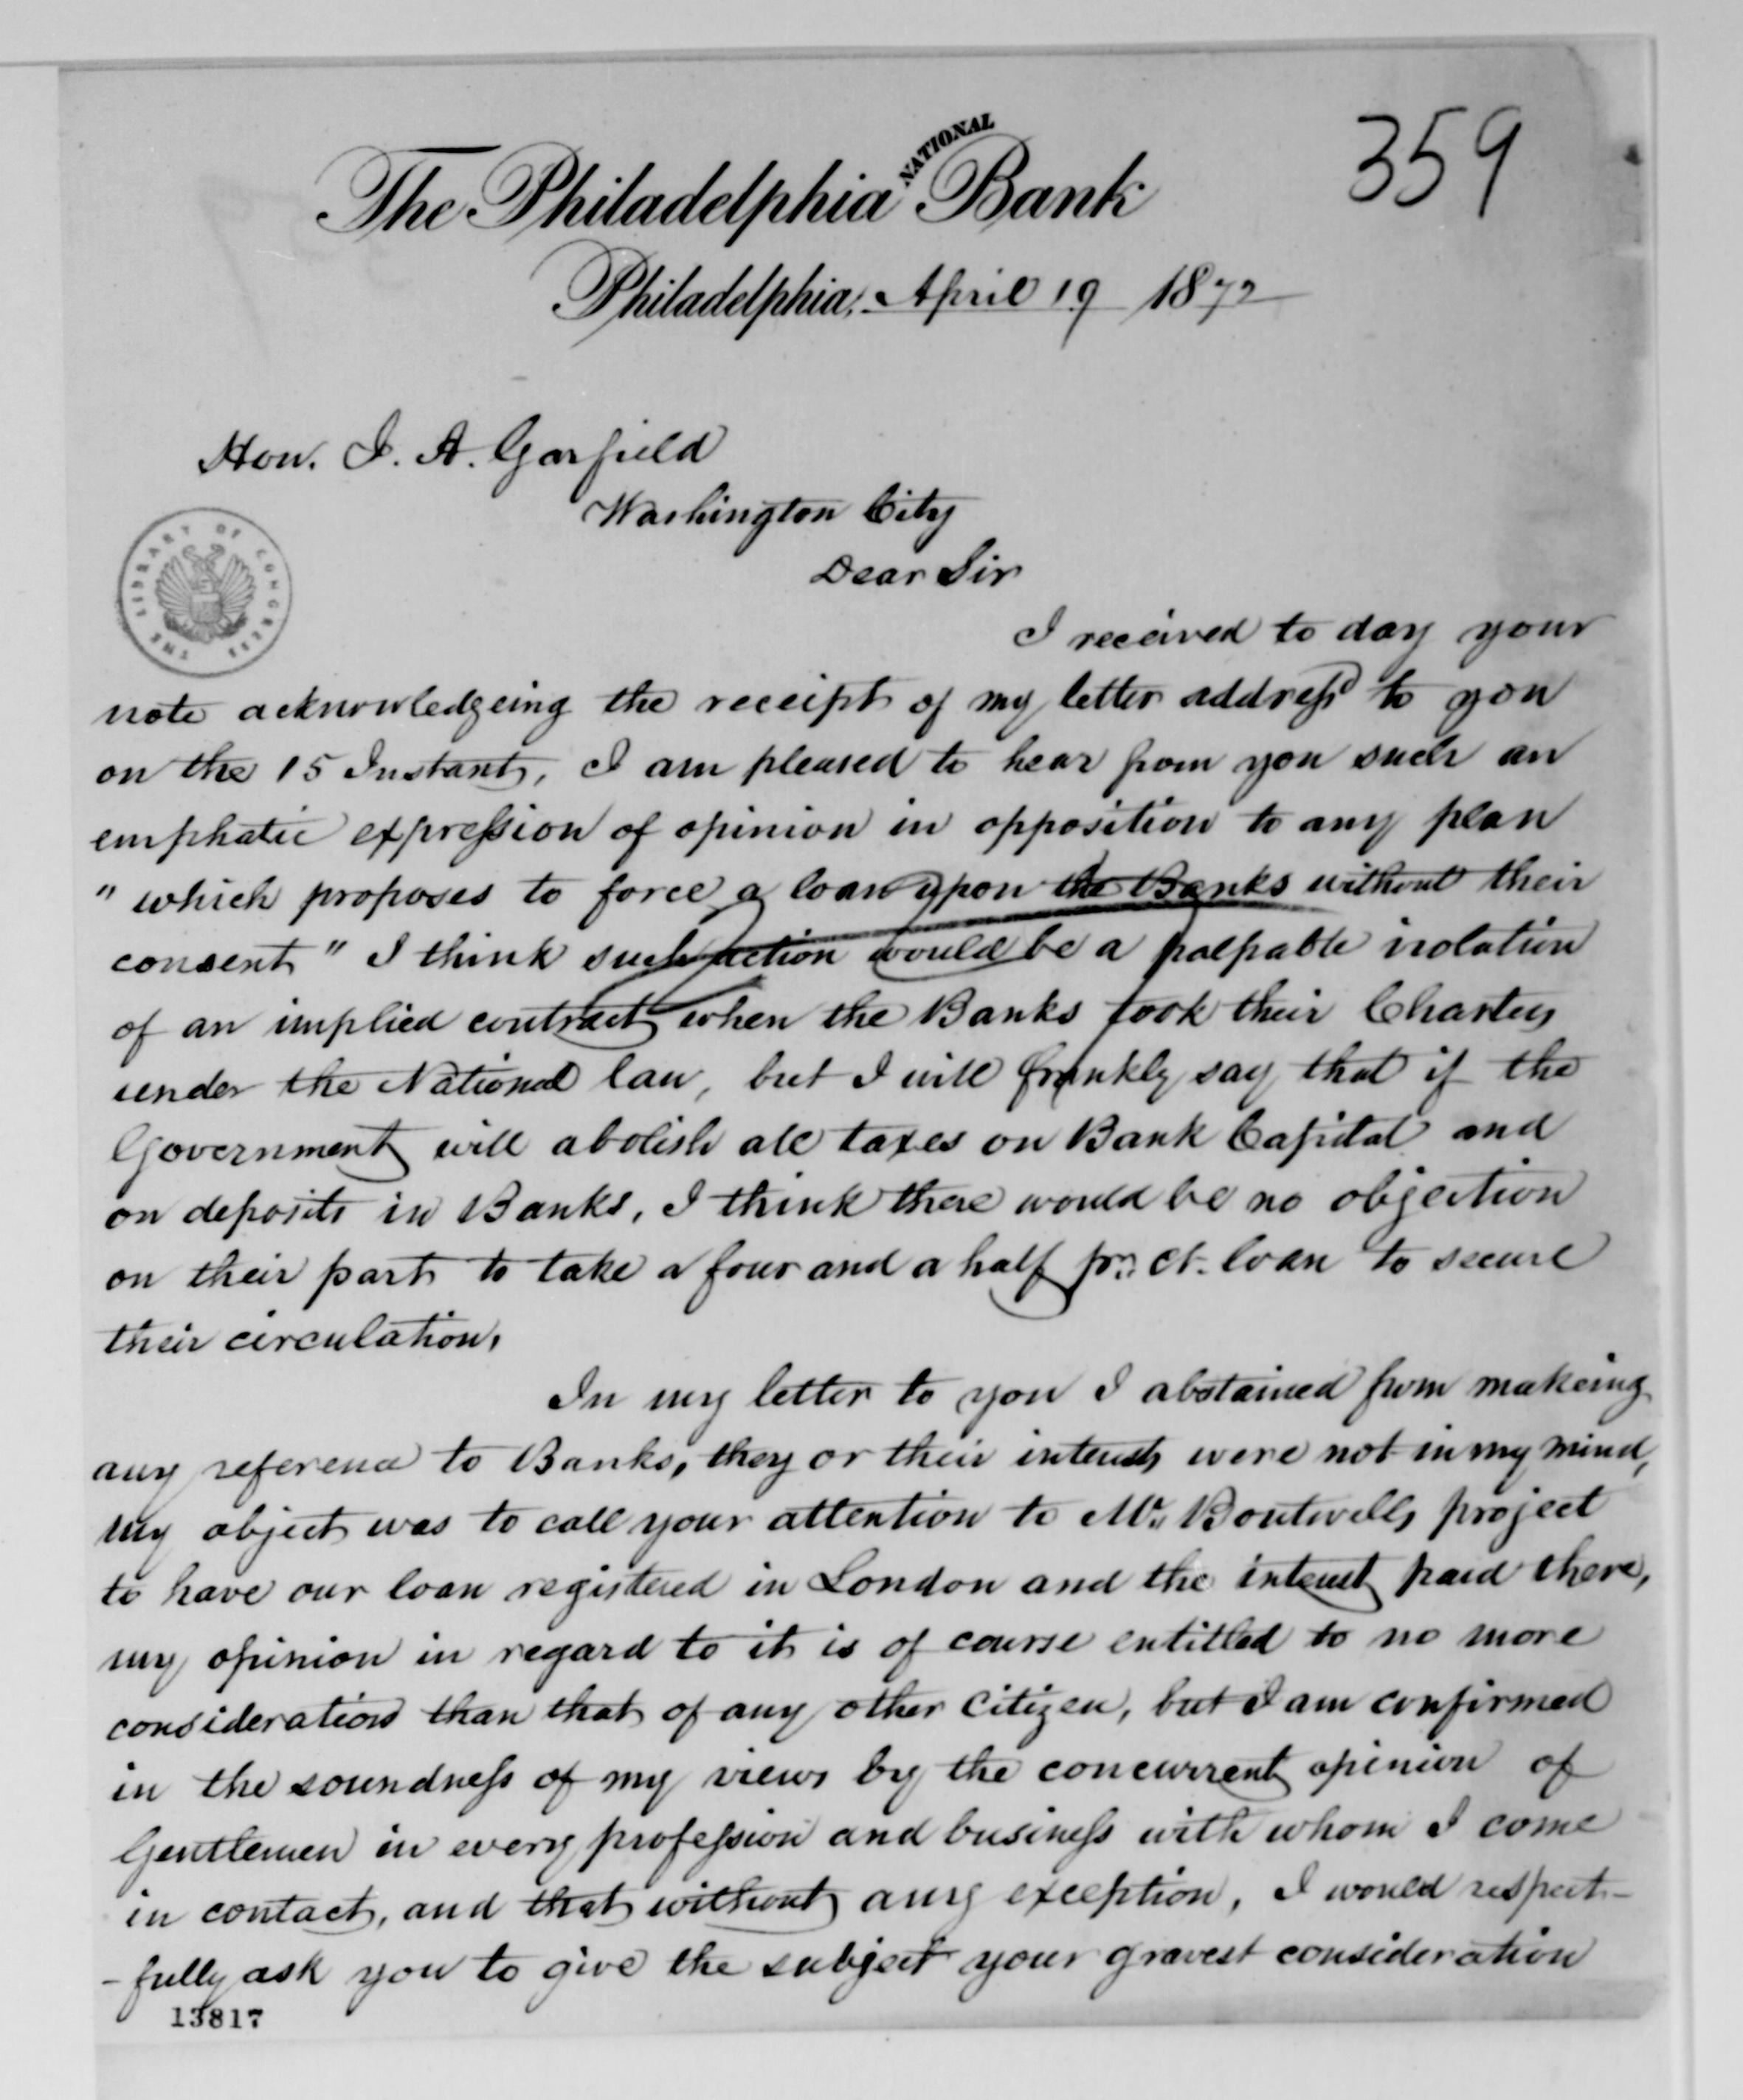 359
The Philadelphia NATIONAL Bank
Philadelphia, April 19 1872
Hon. J. A. Garfield
Washington City
Dear Sir
THE LIBRARY OF CONGRESS
I received to day your
note acknowledgeing the receipt of my letter address'd to you
on the 15 Instant, I am pleased to hear from you such an
emphatic expression of opinion in opposition to any plan
"which proposes to force a loan upon the Banks without their
consent" I think such action would be a palpable violation
of an implied contract when the Banks took their Charters
under the National law, but I will frankly say that if the
Government will abolish all taxes on Bank Capital and
on deposits in Banks, I think there would be no objection
on their part to take a four and a half pr. ct. loan to secure
their circulation,
In my letter to you I abstained from makeing
any reference to Banks, they or their interests were not in my mind,
my object was to call your attention to Mr. Boutwells project
to have our loan registered in London and the interest paid there,
my opinion in regard to it is of course entitled to no more
consideration than that of any other Citizen, but I am confirmed
in the soundness of my views by the concurrent opinion of
Gentlemen in every profession and business with whom I come
in contact, and that without any exception, I would respect-
-fully ask you to give the subject your gravest consideration
13817